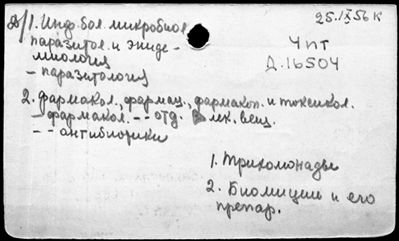 25.IX 56 К
1. Инф. бол. микробиол.
паразитол. и эпиде-
миология
- паразитология
Чпт
Д.16504
2. Фармакол., фармац., фармакоп. и токсикол.
- фармакол. - - отд. лек. вещ.
- - антибиотики
1. Трихомонады
2. Биомицин и его
препар.